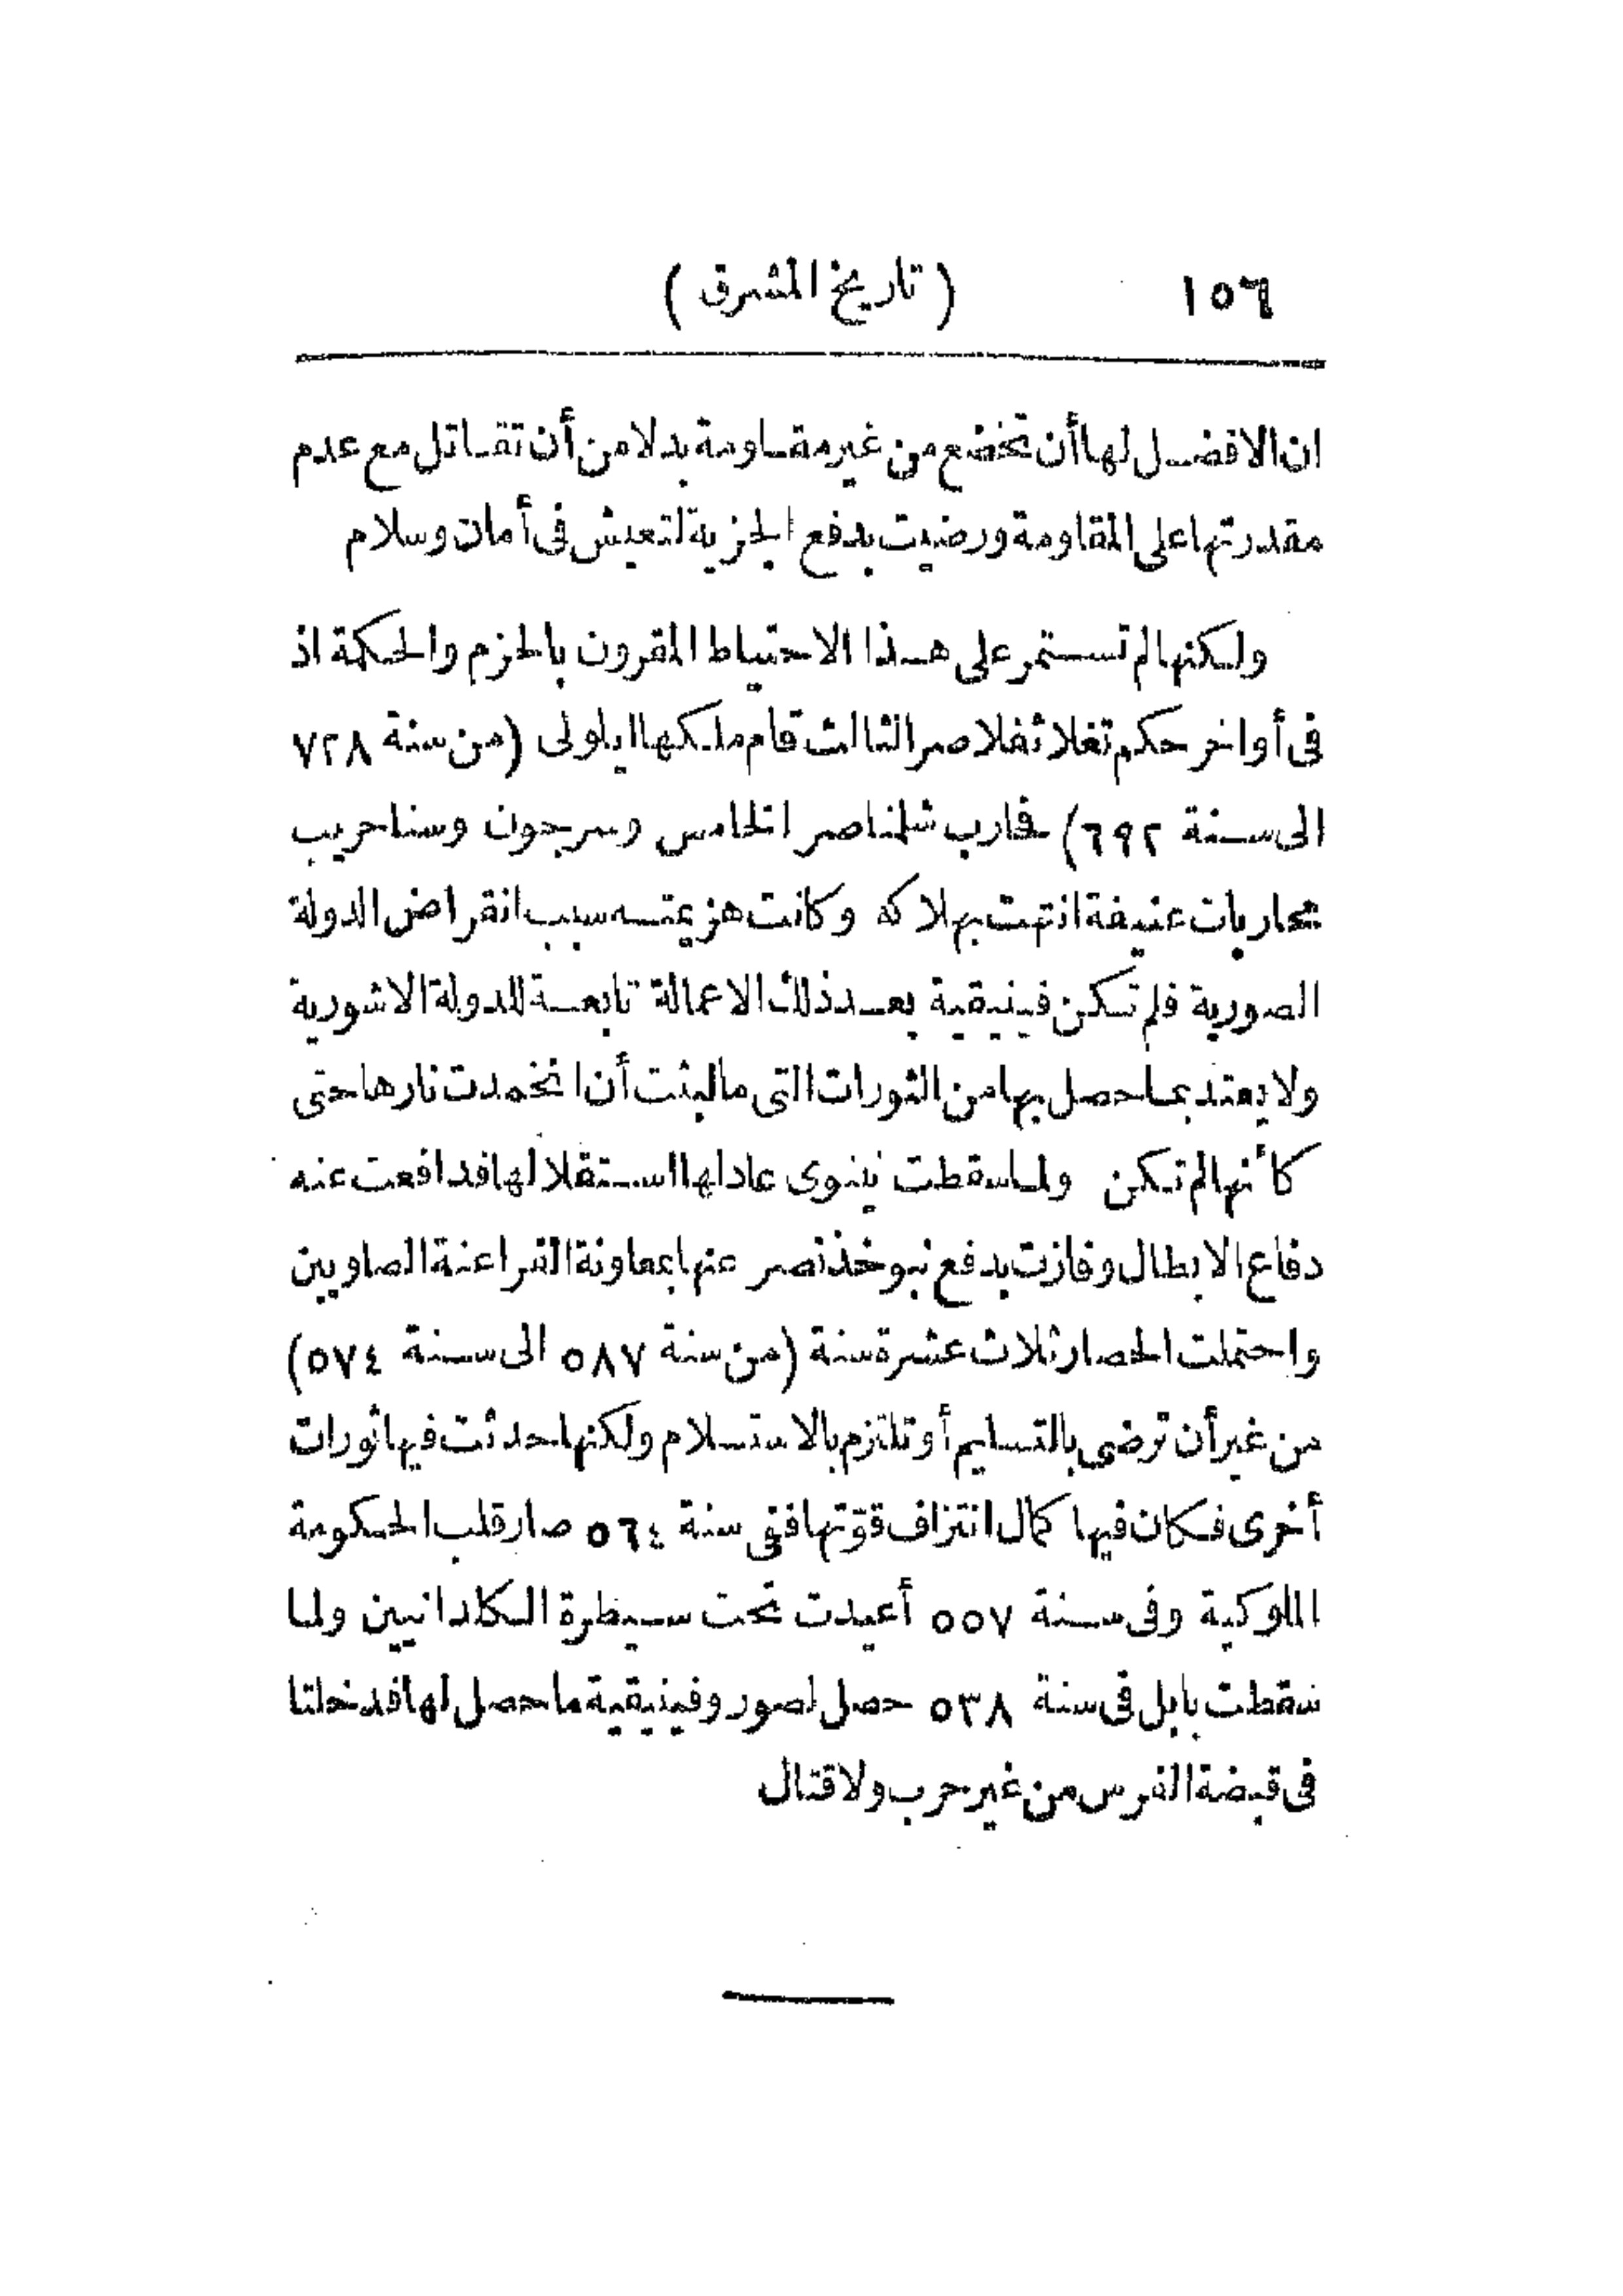 ١٥٦ ( تاريخ المشرق )
ان الافضل لها أن تخضع من غير مقاومة بدلا من أن تقاتل مع عدم
مقدرتها على المقاومة ورضيت بدفع الجزية لتعيش فى أمان وسلام
ولكنها لم تستمر على هذا الاحتياط المقرون بالحزم والحكمة اذ
فى أواخر حكم تغلاثفلاصر الثالث قام ملكها ايلولى (من سنة ٧٢٨
الى سنة ٦٩٢) فحارب شلمناصر الخامس وسرجون وسناحريب
محاربات عنيفة انتهت بهلاكه وكانت هزيمته سبب انقراض الدولة
الصورية فلم تكن فينيقية بعد ذلك الاعمالة تابعة للدولة الاشورية
ولا يعتد بما حصل بها من الثورات التى ما لبثت أن انخمدت نارها حتى
كأنها لم تكن ولما سقطت نينوى عاد لها استقلالها فدافعت عنه
دفاع الابطال وفازت بدفع نبوخذنصر عنها بمعاونة الفراعنة الصاويين
واحتملت الحصار ثلاث عشرة سنة (من سنة ٥٨٧ الى سنة ٥٧٤)
من غير أن ترضى بالتسليم أو تلتزم بالاستسلام ولكنها حدثت فيها ثورات
أخرى فكان فيها كمال انتزاف قوّتها ففى سنة ٥٦٤ صار قلب الحكومة
الملوكية وفى سنة ٥٥٧ أعيدت تحت سيطرة الكلدانيين ولما
سقطت بابل فى سنة ٥٣٨ حصل لصور وفينيقية ما حصل لها فدخلتا
فى قبضة الفرس من غير حرب ولا قتال